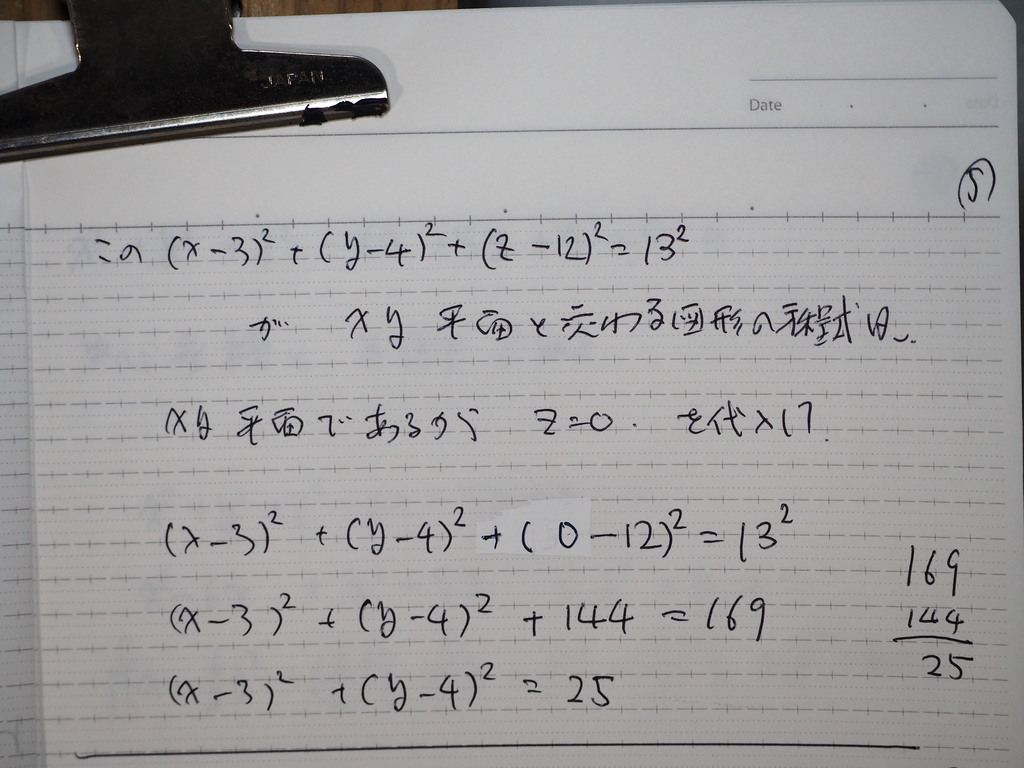 JAPAN
Date
(5)
この (x-3)² + (y-4)² + (z-12)² = 13²
が xy 平面と交わる図形の方程式は、
xy 平面であるから z=0. を代入して
(x-3)² + (y-4)² + (0-12)² = 13²
(x-3)² + (y-4)² + 144 = 169
(x-3)² + (y-4)² = 25
169
144
25